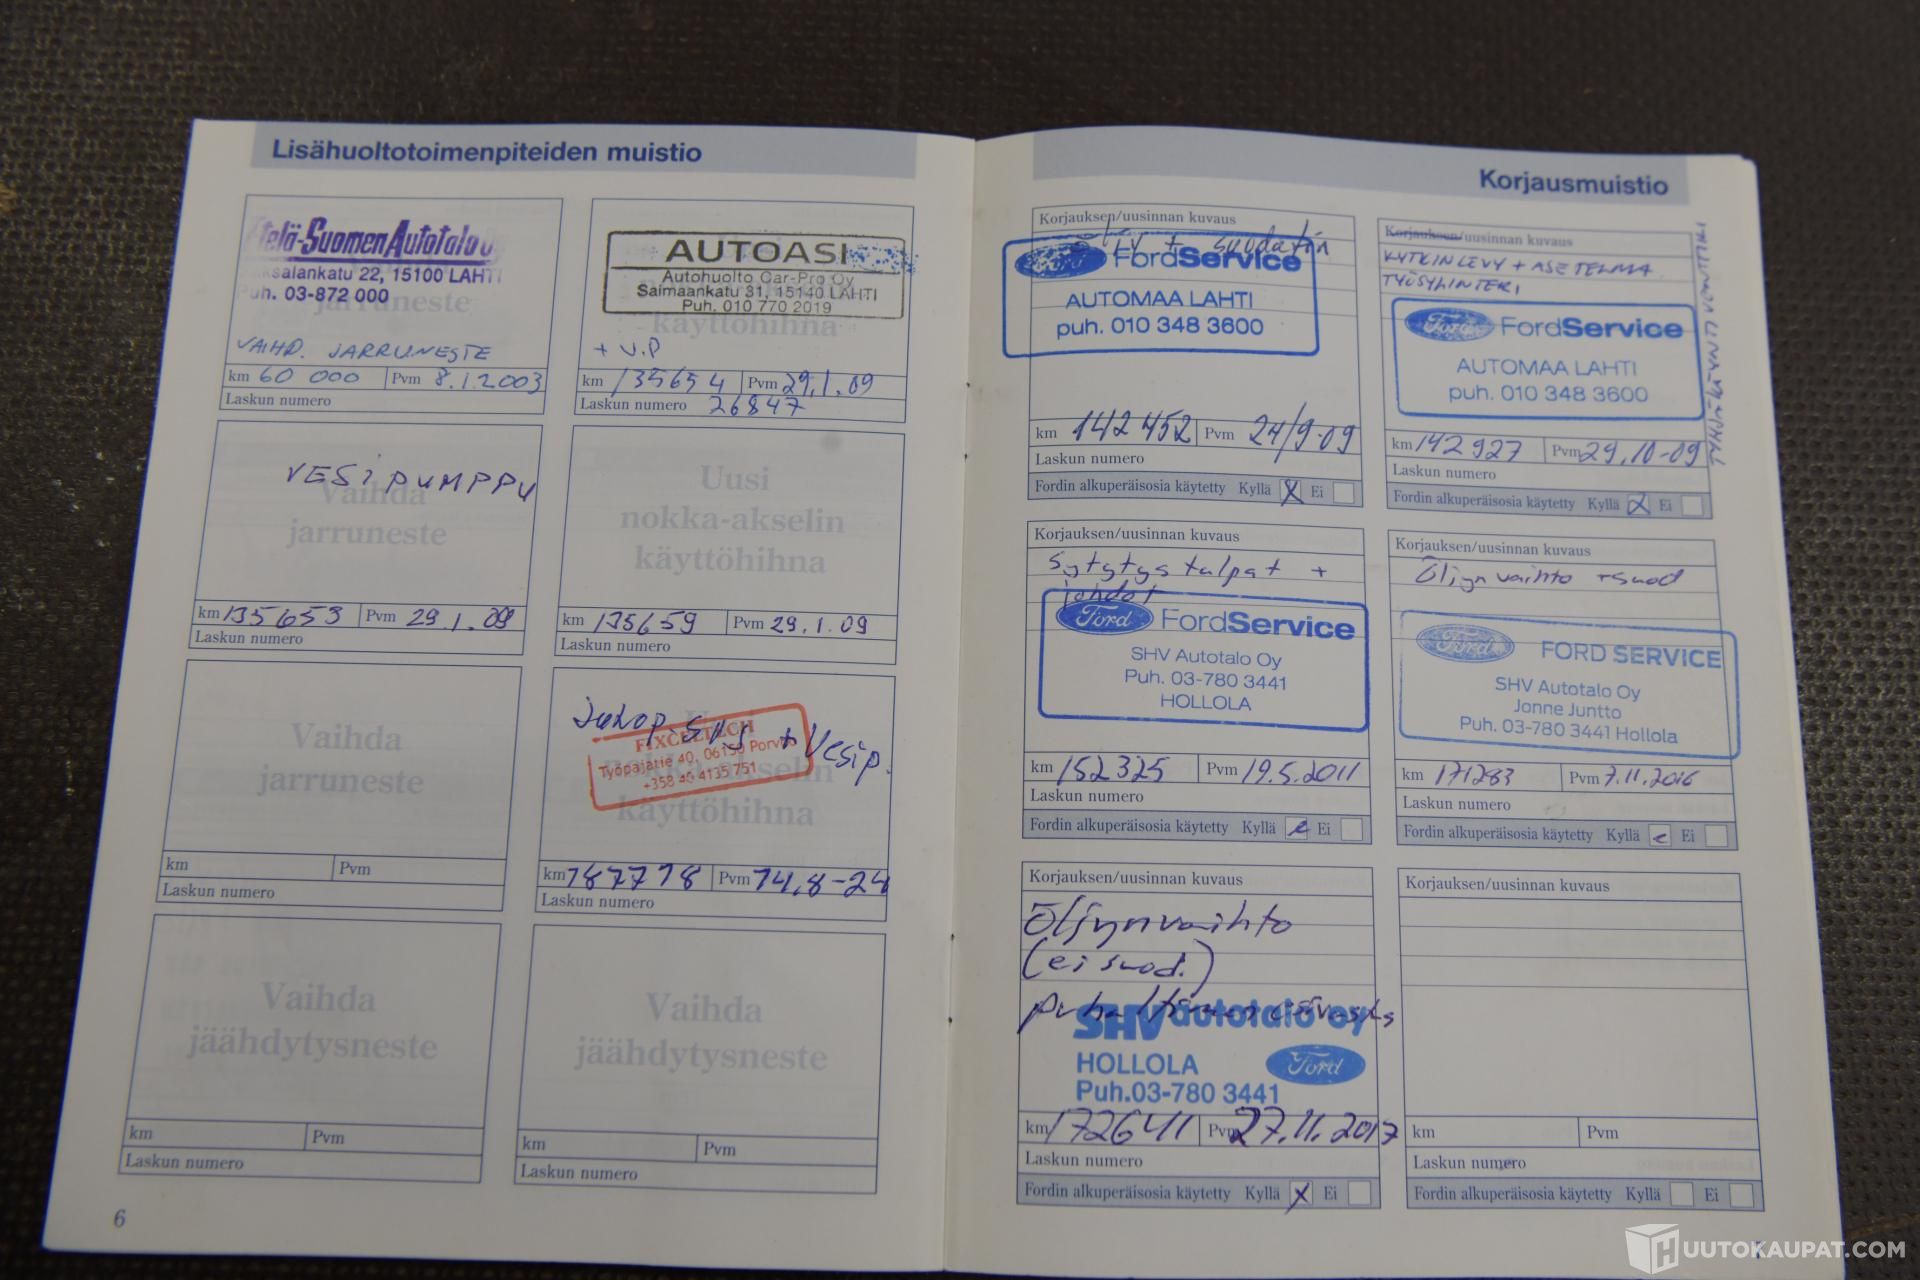 Lisähuoltotoimenpiteiden muistio
Etelä-SuomenAutotalo Oy
Saksalankatu 22, 15100 LAHTI
Puh. 03-872 000
jarruneste
VAIHD. JARRUNESTE
km 60 000 Pvm 8.1.2003
Laskun numero
AUTOASI
Autohuolto Car-Pro Oy
Saimaankatu 31, 15140 LAHTI
Puh. 010 770 2019
käyttöhihna
+ V.P
km 135654 Pvm 29.1.09
Laskun numero 26847
VESIPUMPPU
Vaihda
jarruneste
km 135653 Pvm 29.1.09
Laskun numero
Uusi
nokka-akselin
käyttöhihna
km 135659 Pvm 29.1.09
Laskun numero
Vaihda
jarruneste
km Pvm
Laskun numero
Uusi
+ Vesip.
FIXCELTECH
Työpajatie 40, 06150 Porvoo
+358 46 4135 751
nokka-akselin
käyttöhihna
km 187778 Pvm 14.8-24
Laskun numero
Vaihda
jäähdytysneste
km Pvm
Laskun numero
Vaihda
jäähdytysneste
km Pvm
Laskun numero
6
Korjausmuistio
Korjauksen/uusinnan kuvaus
+ suodatin
Ford FordService
AUTOMAA LAHTI
puh. 010 348 3600
km 142 452 Pvm 24/9-09
Laskun numero
Fordin alkuperäisosia käytetty Kyllä X Ei
Korjauksen/uusinnan kuvaus
KYTKINLEVY + ASETELMA
TYÖSYLINTERI
TYHJÄKÄYNTIVENTTIILI
Ford FordService
AUTOMAA LAHTI
puh. 010 348 3600
km 142927 Pvm 29.10-09
Laskun numero
Fordin alkuperäisosia käytetty Kyllä Ei
Korjauksen/uusinnan kuvaus
Sytytystulpat +
johdot
Ford FordService
SHV Autotalo Oy
Puh. 03-780 3441
HOLLOLA
km 152325 Pvm 19.5.2011
Laskun numero
Fordin alkuperäisosia käytetty Kyllä Ei
Korjauksen/uusinnan kuvaus
Öljynvaihto +suod
Ford FORD SERVICE
SHV Autotalo Oy
Jonne Juntto
Puh. 03-780 3441 Hollola
km 171283 Pvm 7.11.2016
Laskun numero
Fordin alkuperäisosia käytetty Kyllä Ei
Korjauksen/uusinnan kuvaus
Öljynvaihto
(ei suod.)
SHV autotalo oy
HOLLOLA Ford
Puh.03-780 3441
km 172641 Pvm 27.11.2017
Laskun numero
Fordin alkuperäisosia käytetty Kyllä X Ei
Korjauksen/uusinnan kuvaus
km Pvm
Laskun numero
Fordin alkuperäisosia käytetty Kyllä Ei
HUUTOKAUPAT.COM